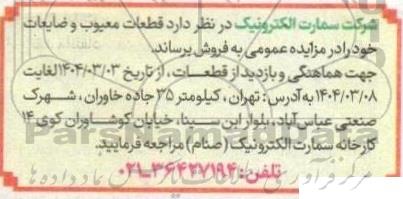 شرکت سمارت الکترونیک در نظر دارد قطعات معیوب و ضایعات
خود را در مزایده عمومی به فروش برساند.
جهت هماهنگی و بازدید از قطعات ، از تاریخ ۱۴۰۴/۰۳/۰۳ لغایت
۱۴۰۴/۰۳/۰۸ به آدرس : تهران ، کیلومتر ۳۵ جاده خاوران ، شهرک
صنعتی عباس آباد ، بلوار ابن سینا، خیابان کوشاوران کوی ۱۴
کارخانه سمارت الکترونیک (صنام) مراجعه فرمایید.
تلفن: ۳۶۴۲۷۱۹۴-۰۲۱
ParsNamadData